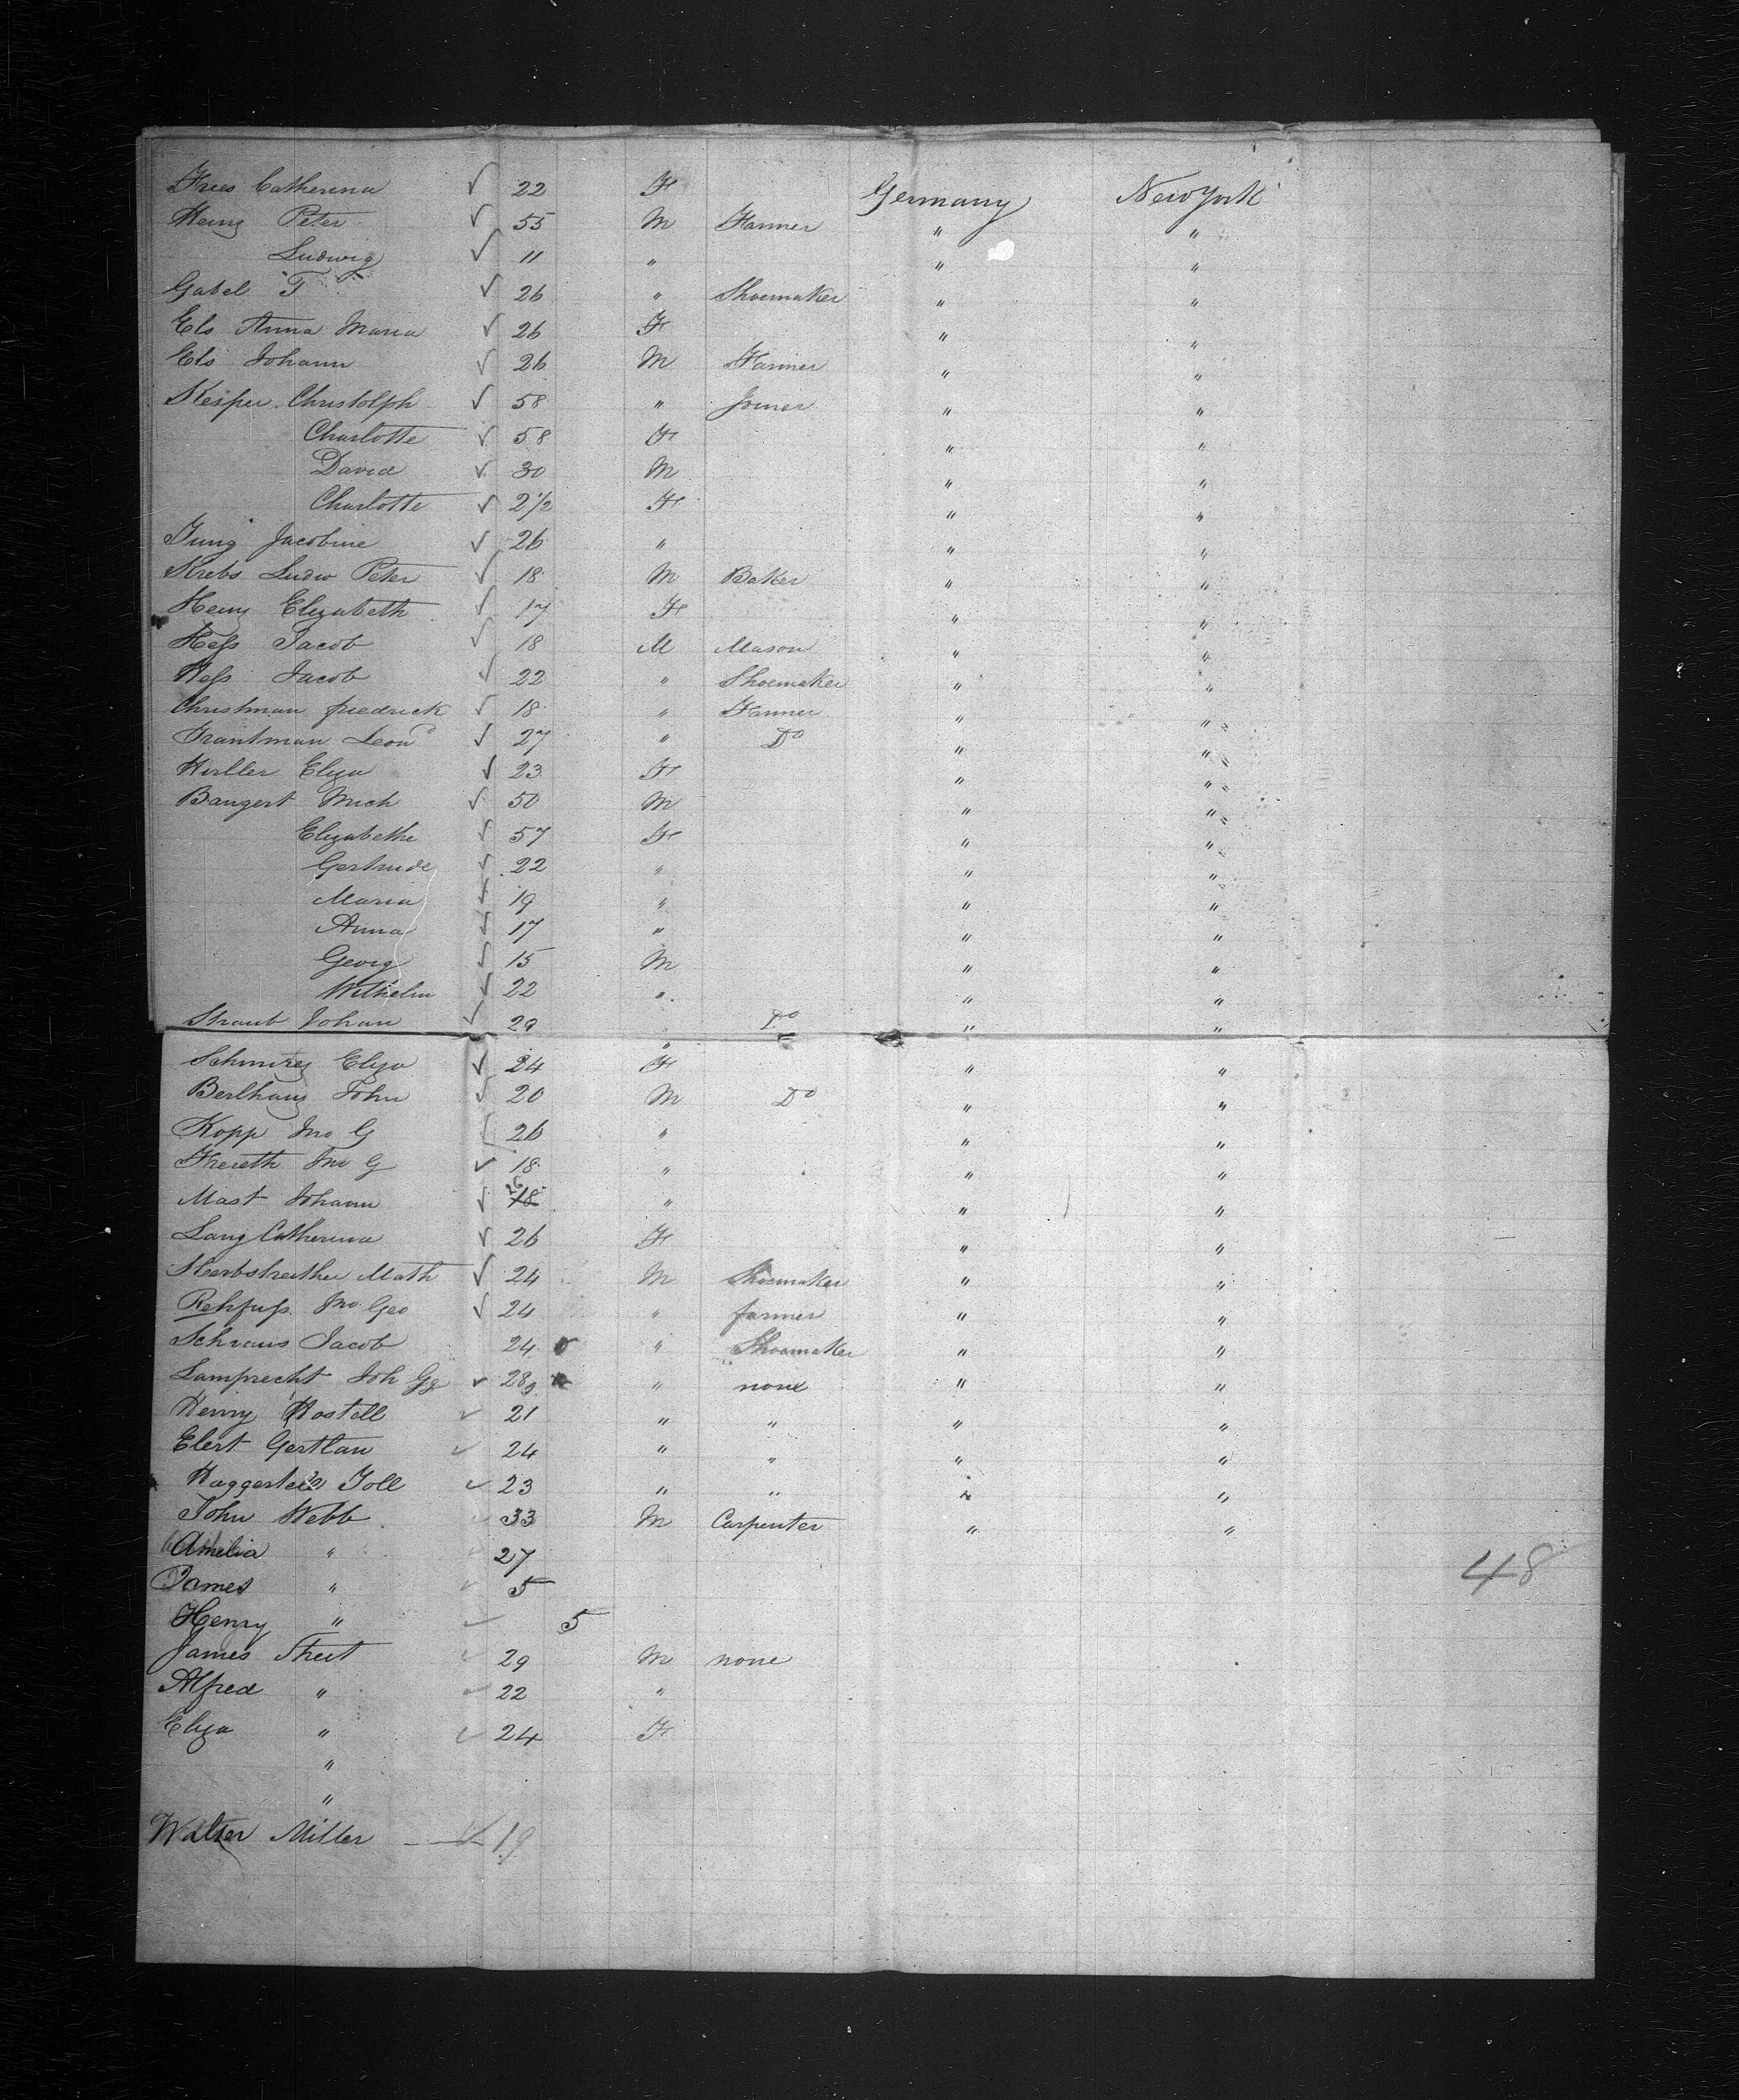 Frees Catherina √ 22 F Germany New York
Heinz Peter √ 55 M Farmer " "
Ludwig √ 11 " " "
Gabel T √ 26 " Shoemaker " "
Els Anna Maria √ 26 F " "
Els Johann √ 26 M Farmer " "
Kesper Christolph √ 58 " Joiner " "
Charlotte √ 58 F " "
David √ 30 M " "
Charlotte √ 2 1/2 F " "
Jung Jacobine √ 26 " " "
Krebs Ludw Peter √ 18 M Baker " "
Heinz Elizabeth √ 17 F " "
Hess Jacob √ 18 M Mason " "
Hess Jacob √ 22 " Shoemaker " "
Christman fredrick √ 18 " Farmer " "
Trantman Leond √ 27 " Do " "
Hirller Eliza √ 23 F " "
Bangert Mich √ 50 M " "
Elizabethe √ 57 F " "
Gertrude √ 22 " " "
Maria √ 19 " " "
Anna √ 17 " " "
Georg √ 15 M " "
Wilhelm √ 22 " " "
Straub Johan √ 29 " Do " "
Eliza √ 24 F " "
John √ 20 M Do " "
Kopp Jno G 26 " " "
Jno G √ 18 " " "
Mast Johann √ 26 18 " " "
Lang Catherina √ 26 F " "
Herbstreither Math √ 24 M Shoemaker " "
Rehfuss Jno Geo √ 24 " farmer " "
Schraus Jacob 24 " Shoemaker " "
Lamprecht Joh Gg √ 28 " none " "
Henry Hostell √ 21 " " " "
Elert Gertlan √ 24 " " " "
Toll √ 23 " " " "
John Webb √ 33 M Carpenter " "
Amelia " √ 27
James " √ 5
48
Henry " √ 5
James Street √ 29 M none
Alfred " √ 22 "
Eliza " √ 24 F
"
"
Walter Miller √ 19